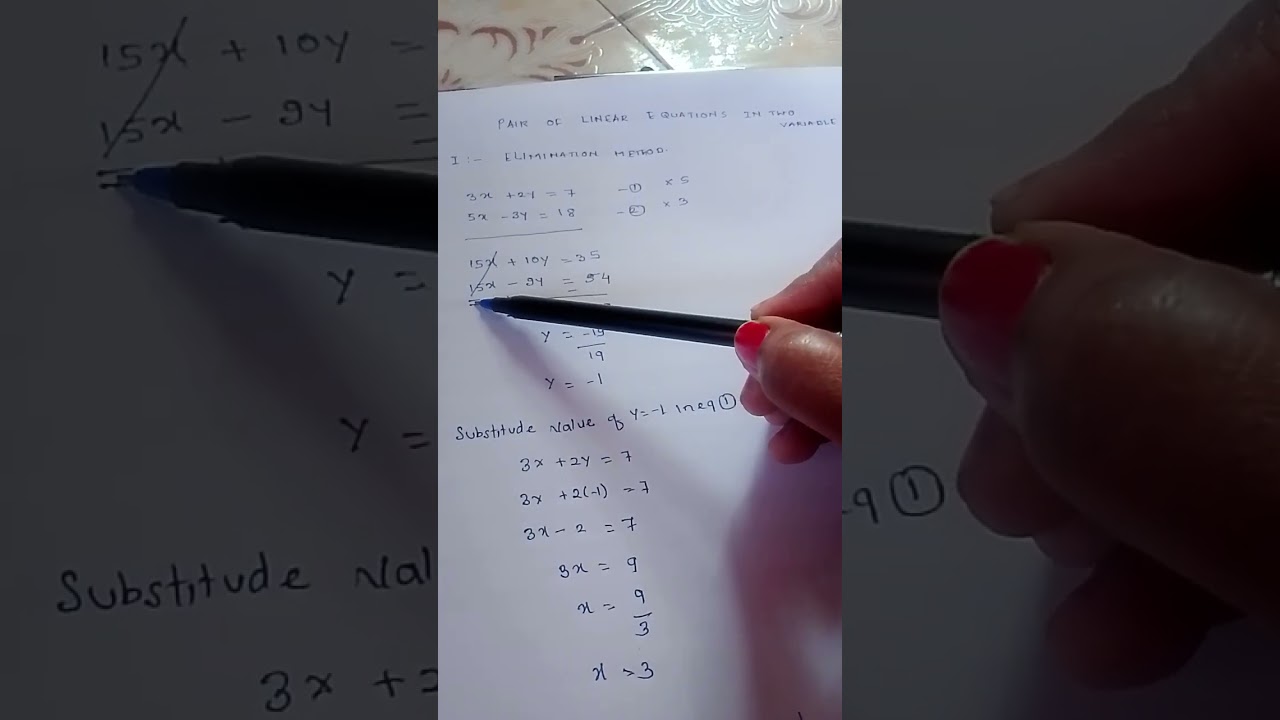 PAIR OF LINEAR EQUATIONS IN TWO
VARIABLE
I :- ELIMINATION METHOD.
3x + 2y = 7 - ① × 5
5x - 3y = 18 - ② × 3
15x + 10y = 35
15x - 9y = 54
y = -19
19
y = -1
Substitude value of y=-1 in eq ①
3x + 2y = 7
3x + 2(-1) = 7
3x - 2 = 7
3x = 9
x = 9
3
x = 3